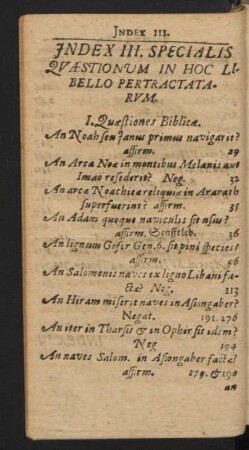 INDEX III.
INDEX III. SPECIALIS
QVÆSTIONUM IN HOC LI-
BELLO PERTRACTATA-
RVM.
I. Quæstiones Biblicæ.
An Noah seu Janus primus navigarit?
affirm. 29
An Arca Noæ in montibus Melanis aut
Imao resederit? Neg. 32
An arca Noachica reliquiæ in Ararath
superfuerint? affirm. 35
An Adam quoque naviculis sit usus?
affirm. Senfftleb. 36
An lignum Gofir Gen. 6. sit pini species?
affirm. 66
An Salomonis naves ex ligno Libani fa-
ctæ? Neg. 113
An Hiram miserit naves in Asiongaber?
Negat. 191. 276
An iter in Tharsis & in Ophir sit idem?
Neg 194
An naves Salom. in Asiongaber factæ?
affirm. 279. & 190
an